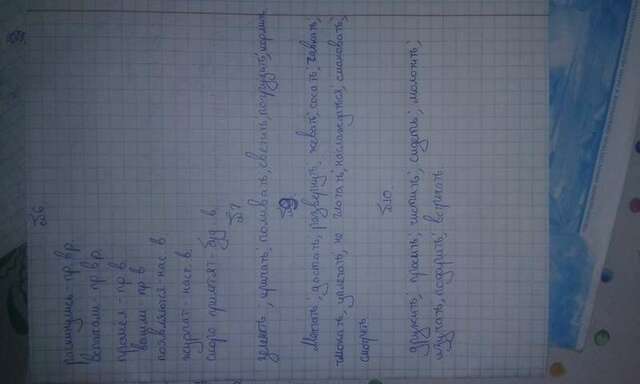 №6.
раскинулись - пр. вр.
вспахали - пр. вр.
прошёл - пр. в.
вошли - пр. в
появляются - нас. в.
журчат - наст. в.
скоро прилетят - буд. в.
№7
зеленеть; кричать; поливать, светить, погрузить; кормить.
№9
Мечтать; достать, развернуть, жевать; сосать; чавкать;
чмокать, уплетать, не глотать; наслаждаться, смаковать;
смотреть.
№10.
дружить; просить; чистить; сидеть; молотить;
изучать, подарить; встречать.